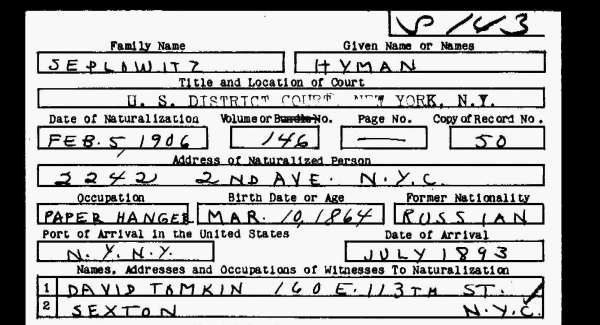 S 143
Family Name Given Name or Names
SEPLOWITZ HYMAN
Title and Location of Court
U. S. DISTRICT COURT, NEW YORK, N.Y.
Date of Naturalization Volume or Bundle No. Page No. Copy of Record No.
FEB. 5, 1906 146 — 50
Address of Naturalized Person
2242 2ND AVE. N.Y.C.
Occupation Birth Date or Age Former Nationality
PAPER HANGER MAR. 10, 1864 RUSSIAN
Port of Arrival in the United States Date of Arrival
N.Y. N.Y. JULY 1893
Names, Addresses and Occupations of Witnesses To Naturalization
1 DAVID TOMKIN 160 E. 113TH ST.
2 SEXTON N.Y.C.